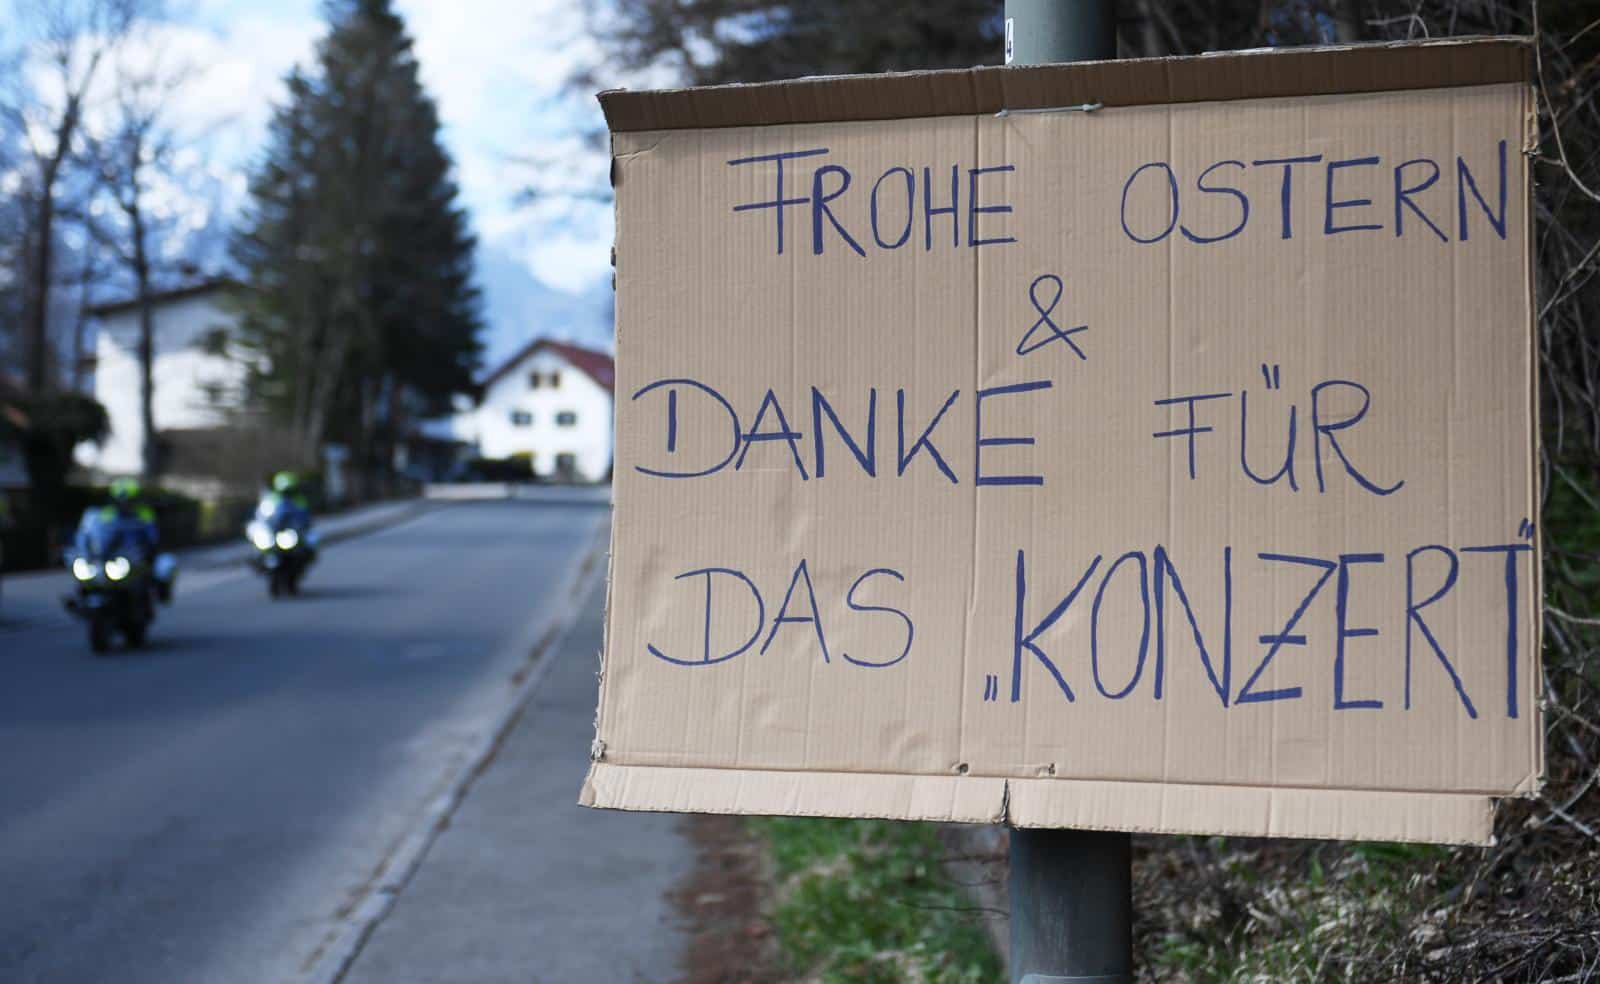 4
FROHE OSTERN
&
DANKE FÜR
DAS „KONZERT"